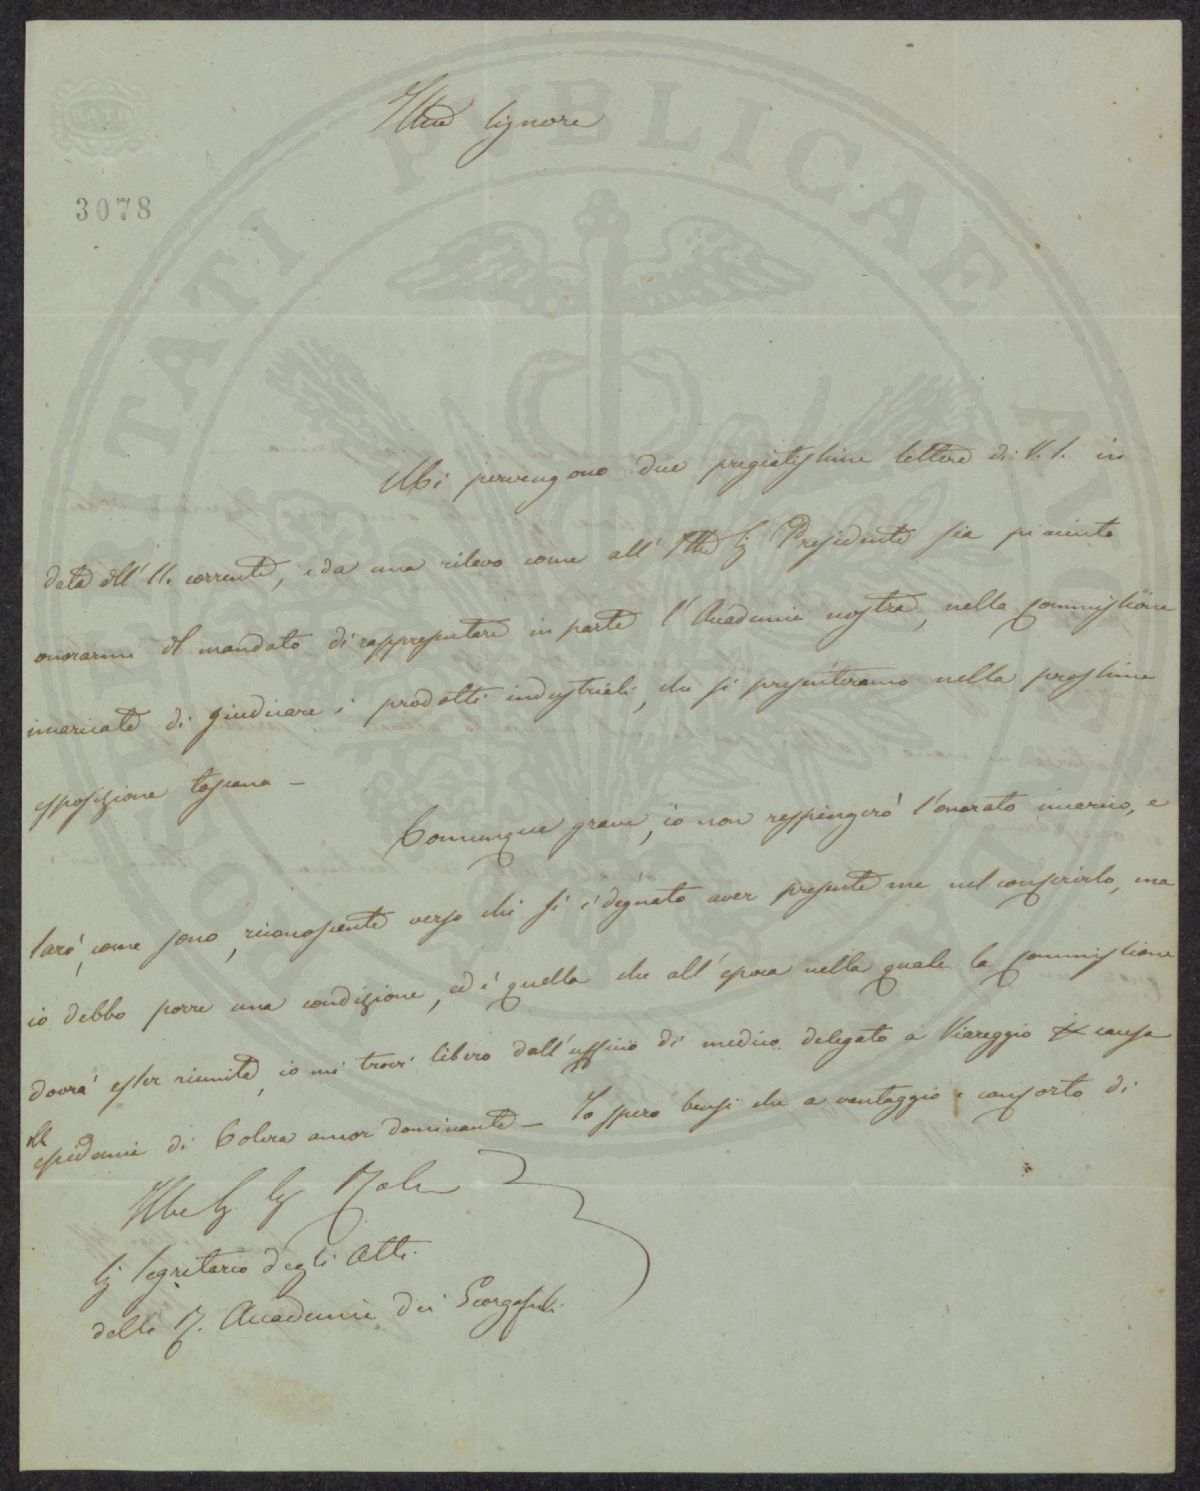 PROSPERITATI PVBLICAE AVGENDAE
3078
Illmo Signore
Mi pervengono due pregiatissime lettere di V. S. in
data dell' 11. corrente, e da una rilevo come all' Illmo Sig Presidente sia piaciuto
onorarmi del mandato di rappresentare in parte l'Accademia nostra, nella Commissione
incaricata di giudicare i prodotti industriali, che si presenteranno nella prossima
esposizione toscana –
Comunque grave, io non respingerò l'onorato incarico, e
sarò, come sono, riconoscente verso chi si è degnato aver presente me nel conferirlo, ma
io debbo porre una condizione, ed è quella che all'epoca nella quale la Commissione
dovrà esser riunita, io mi trovi libero dall'uffizio di medico delegato a Viareggio causa
epidemia di Colera ancor dominante – Io spero bensì che a vantaggio e conforto di
Segretario degli Atti
della R. Accademia dei Georgofili